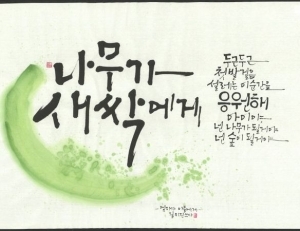 나무가
새싹에게
두근두근
첫 발걸음
설레는 이 순간을
응원해
아이야
넌 나무가 될거야
넌 숲이 될거야